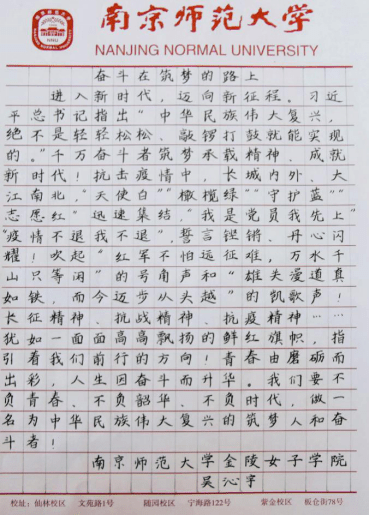 南京师范大学
NANJING NORMAL UNIVERSITY
奋斗在筑梦的路上
进入新时代，迈向新征程。习近
平总书记指出“中华民族伟大复兴，
绝不是轻轻松松、敲锣打鼓就能实现
的。”千万奋斗者筑梦承载精神、成就
新时代！抗击疫情中，长城内外、大
江南北，“天使白”“橄榄绿”“守护蓝”“
志愿红”迅速集结，“我是党员我先上”
“疫情不退我不退”，誓言铿锵、丹心闪
耀！吹起“红军不怕远征难，万水千
山只等闲”的号角声和“雄关漫道真
如铁，而今迈步从头越”的凯歌声！
长征精神、抗战精神、抗疫精神……
犹如一面面高高飘扬的鲜红旗帜，指
引着我们前行的方向！青春由磨砺而
出彩，人生因奋斗而升华。我们要不
负青春、不负韶华、不负时代，做一
名为中华民族伟大复兴的筑梦人和奋
斗者！
南京师范大学金陵女子学院
吴沁宇
校址：仙林校区 文苑路1号 随园校区 宁海路122号 紫金校区 板仓街78号